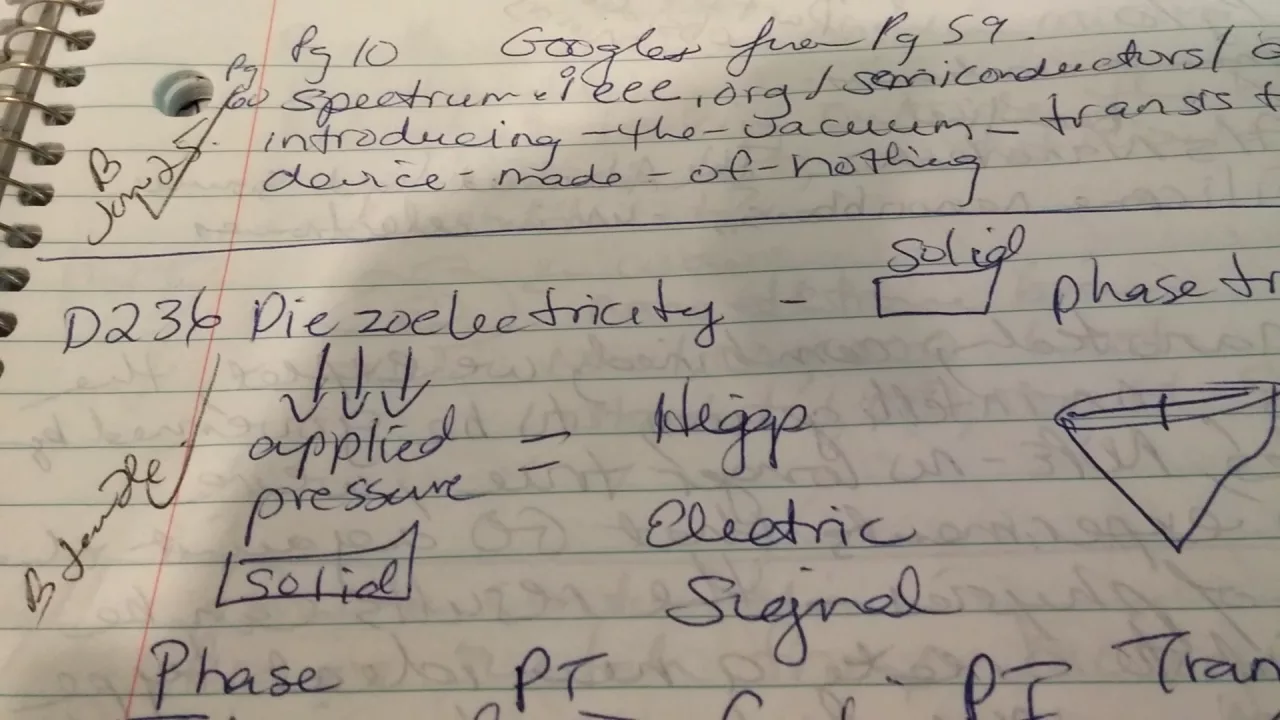 Pg 10 Googles from Pg 59.
Pg 60 spectrum.ieee.org/semiconductors/
introducing-the-vacuum-transist
device-made-of-nothing
B Jan 25
solid
D236 Piezoelectricity - phase tr
applied = 
pressure
Electric
solid
Signal
B Jan 26
Phase PT PT Tran